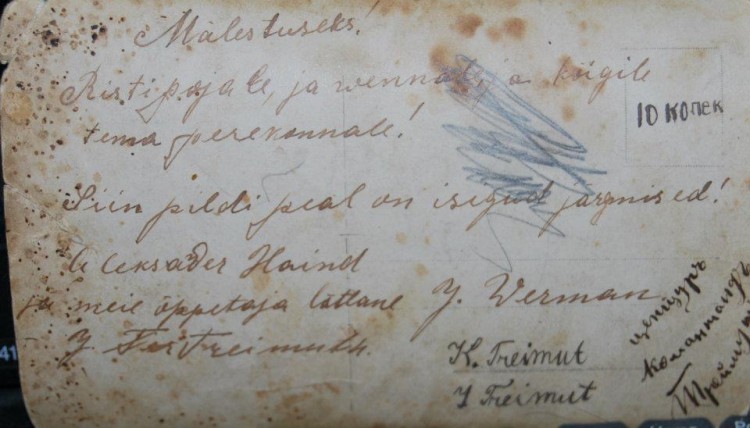 Mälestuseks!
Ristipojale, ja wennale ja kõigile
tema perekonnale!
10 копек
Siin pildi peal on isegud järgmised!
Aleksader Haind
ja meie õppetaja lätlane J. Werman
J. Treimuth.
K. Treimut
J Treimut
цензуръ
комантандъ